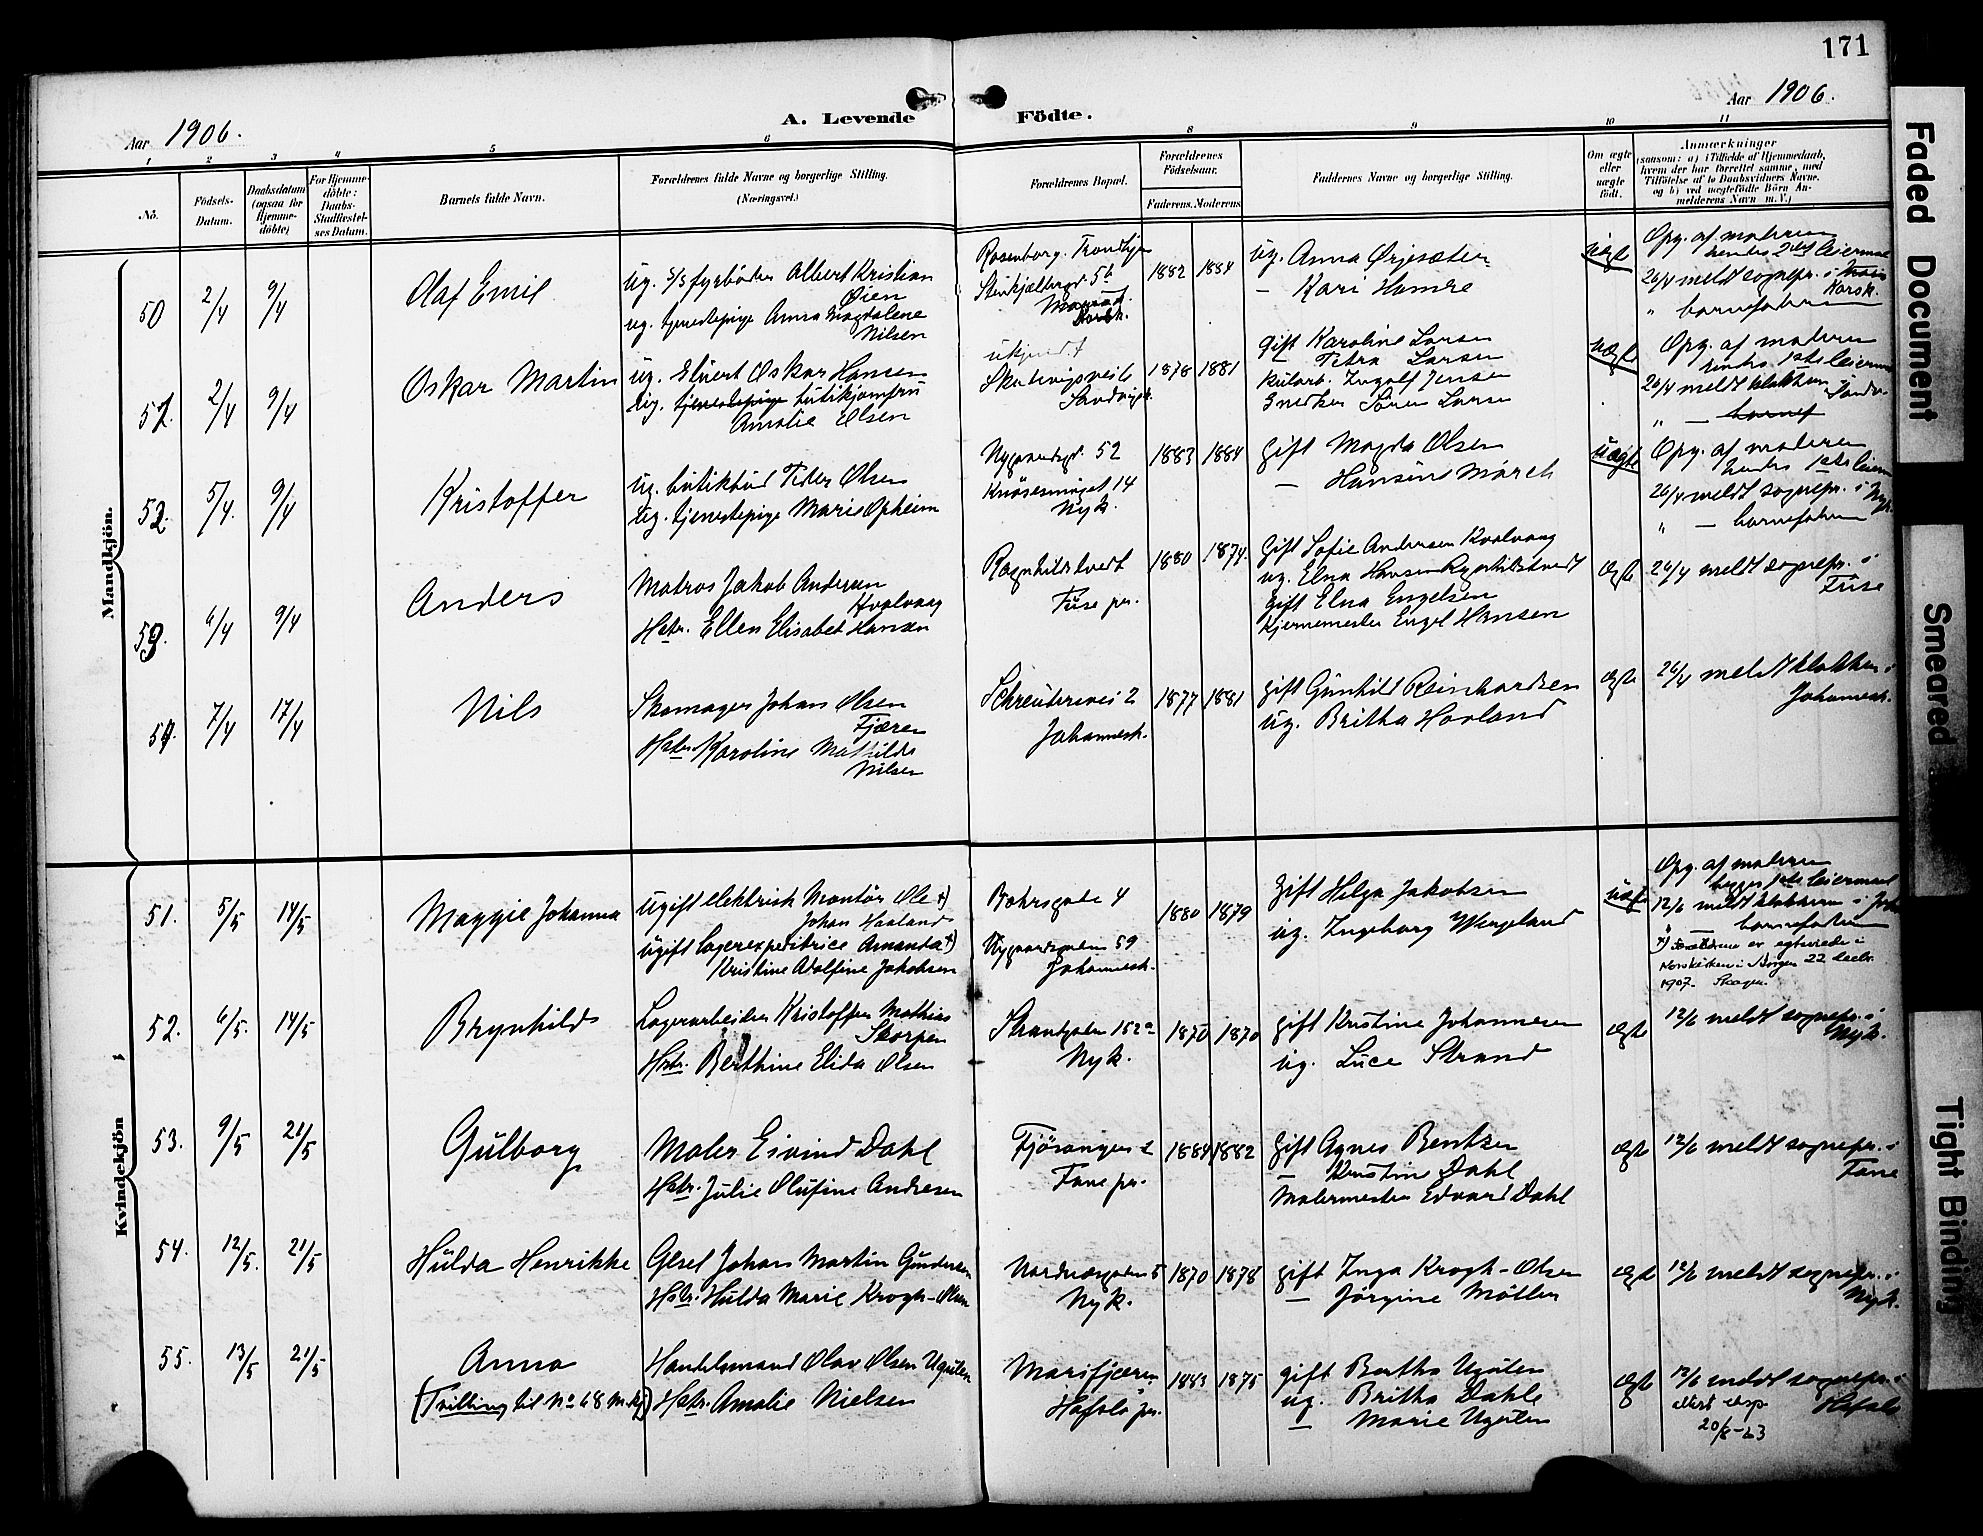 171
Aar 1906.
A. Levende Födte.
Aar 1906.
1 2 3 4 5 6 8 9 10 11
No.
Födsels-
Datum.
Daabsdatum
(ogsaa for
Hjemme-
döbte)
For Hjemme-
döbte:
Daabs-
Stadfæstel-
ses Datum.
Barnets fulde Navn.
Forældrenes fulde Navne og borgerlige Stilling.
(Næringsvei.)
Forældrenes Bopæl.
Forældrenes
Födselsaar.
Faderens. Moderens
Faddernes Navne og borgerlige Stilling.
Om ægte
eller
uægte
födt.
Anmærkninger
(saasom: a) i Tilfælde af Hjemmedaab,
hvem der har forrettet samme, med
Tilföielse af to Daabsvidners Navne,
og b) ved uægtefödte Börn An-
melderens Navn m. V.)
Mandkjön.
50
2/4
9/4
Olaf Emil
ug. s/s fyrböder Albert Kristian
Øien
ug. tjenestepige Anna Magdalene
Nilsen
Rosenborg. Trondhjem
Stenkjælbergt 5b
Korsk.
1882
1884
ug. Anna Ørjesæter
— Kari Hamre
uægte
Opg. af moderen
hendes 2det leiermaal
26/4 meldt sognepr. i
Korsk.
" barnefaderen
51.
2/4
9/4
Oskar Martin
ug. Elvert Oskar Hansen
ug. tjenestepige butikjomfru
Amalie Olsen
ukjendt
Skutevigsvei 6
Sandvigk.
1878
1881
Gift Karoline Larsen
Petra Larsen
Kularb. Ingolf Jensen
Snedker Sören Larsen
uægte
Opg. af moderen
hendes 1ste leierm
26/4 meldt klokkeren Sandv.
" — barnef
52.
5/4.
9/4
Kristoffer
ug. butikbud Peder Olsen
ug. tjenestepige Marie Opheim
Nygaardsgt. 52
Knösesmuget 14
Nyk.
1883
1884
Gift Magda Olsen
— Hansine Mörch
uægte
Opg. af moderen
hendes 1ste leierm
26/4 meldt sognepr. i Nyk.
" — barnefaderen
53.
6/4
9/4
Anders
Matros Jakob Andersen
Hvalvaag
Hstr. Ellen Elisabet Hansen
Ragnhildstvedt
Fuse pr.
1880
1874.
Gift Sofie Andersen Kvalvaag
ug. Elna Hansen Ragnhildstvedt
Gift Elna Engelsen
Kjernemester Engel Hansen
ægte
26/4 meldt sognepr. i
Fuse
54.
7/4
17/4
Nils
Skomager Johan Olsen
Fjæren
Hstr. Karoline Mathilde
Nilsen
Schreutersvei 2
Johannesk.
1877
1881
gift Gunhild Reinhardsen
ug. Britha Hovland
ægte
26/4 meldt klokkeren i
Johannesk.
Kvindekjön
51.
5/5
14/5
Maggie Johanna
Ugift elektrisk Montör Ole x)
Johan Haaland
ugift Lagerexpeditrice Amanda x)
Kristine Adolfine Jakobsen
Bohrsgade 4
Nygaardsgaden 59
Johannesk.
1880
1879
Gift Helga Jakobsen
ug. Ingeborg Wergeland
uægte
Opg. af moderen
begges 1ste leiermaal
12/6 meldt klokkeren i Joh
" — barnefaderen
x) Forældrene er egteviede i
Korskirken i Bergen 22 decbr.
1907.
52.
6/5.
14/5
Brynhild
Lagerarbeider Kristoffer Mathias
Skorpen
Hstr. Berthine Elida Olsen
Strandgaden 152a
Nyk.
1870
1870
gift Kristine Johannesen
ug. Luce Strand
ægte
12/6 meldt sognepr. i
Nyk.
53.
9/5
21/5
Gulborg
Maler Eivind Dahl
Hstr. Julie Olufine Andresen
Fjösanger
Fane pr.
1884
1882
Gift Agnes Bentzen
— Kristine Dahl
Malermester Edvard Dahl
ægte
12/6 meldt sognepr. i
Fane
54.
12/5.
21/5
Hulda Henrikke
Gesel Johan Martin Gundersen
Hstr. Hulda Marie Krogh-Olsen
Nordnæsgaden 5
Nyk.
1870
1878
gift Inga Krogh-Olsen
— Jörgine Möller
ægte
12/6 meldt sognepr. i
Nyk.
55.
13/5
21/5
Anna
(Tvilling til No 68 m.kj.)
Handelsmand Olav Olsen Ugulen
Hstr. Amalie Nielsen
Marifjæren
Hafslo pr.
1883
1875
gift Bertha Ugulen
ug. Britha Dahle
— Marie Ugulen
ægte
12/6 meldt sognepr. i
Hafslo
20/8-23
Faded Document
Smeared
Tight Binding